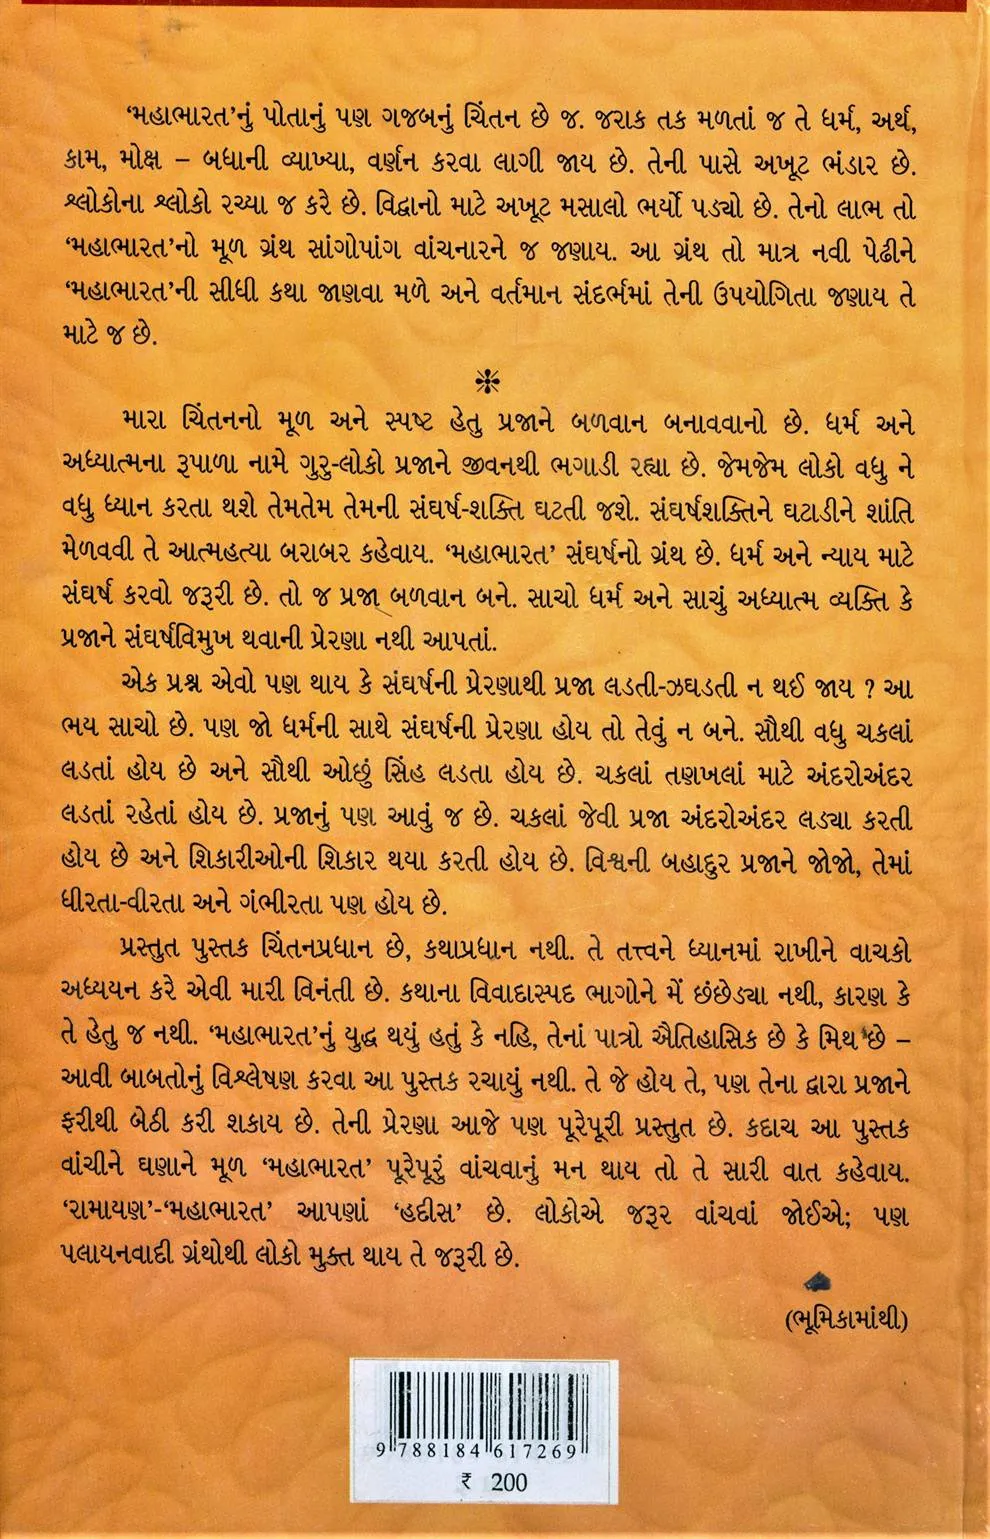 ‘મહાભારત’નું પોતાનું પણ ગજબનું ચિંતન છે જ. જરાક તક મળતાં જ તે ધર્મ, અર્થ,
કામ, મોક્ષ – બધાની વ્યાખ્યા, વર્ણન કરવા લાગી જાય છે. તેની પાસે અખૂટ ભંડાર છે.
શ્લોકોના શ્લોકો રચ્યા જ કરે છે. વિદ્વાનો માટે અખૂટ મસાલો ભર્યો પડ્યો છે. તેનો લાભ તો
‘મહાભારત’નો મૂળ ગ્રંથ સાંગોપાંગ વાંચનારને જ જણાય. આ ગ્રંથ તો માત્ર નવી પેઢીને
‘મહાભારત’ની સીધી કથા જાણવા મળે અને વર્તમાન સંદર્ભમાં તેની ઉપયોગિતા જણાય તે
માટે જ છે.
મારા ચિંતનનો મૂળ અને સ્પષ્ટ હેતુ પ્રજાને બળવાન બનાવવાનો છે. ધર્મ અને
અધ્યાત્મના રૂપાળા નામે ગુરુ-લોકો પ્રજાને જીવનથી ભગાડી રહ્યા છે. જેમજેમ લોકો વધુ ને
વધુ ધ્યાન કરતા થશે તેમતેમ તેમની સંઘર્ષ-શક્તિ ઘટતી જશે. સંઘર્ષશક્તિને ઘટાડીને શાંતિ
મેળવવી તે આત્મહત્યા બરાબર કહેવાય. ‘મહાભારત’ સંઘર્ષનો ગ્રંથ છે. ધર્મ અને ન્યાય માટે
સંઘર્ષ કરવો જરૂરી છે. તો જ પ્રજા બળવાન બને. સાચો ધર્મ અને સાચું અધ્યાત્મ વ્યક્તિ કે
પ્રજાને સંઘર્ષવિમુખ થવાની પ્રેરણા નથી આપતાં.
એક પ્રશ્ન એવો પણ થાય કે સંઘર્ષની પ્રેરણાથી પ્રજા લડતી-ઝઘડતી ન થઈ જાય ? આ
ભય સાચો છે. પણ જો ધર્મની સાથે સંઘર્ષની પ્રેરણા હોય તો તેવું ન બને. સૌથી વધુ ચકલાં
લડતાં હોય છે અને સૌથી ઓછું સિંહ લડતા હોય છે. ચકલાં તણખલાં માટે અંદરોઅંદર
લડતાં રહેતાં હોય છે. પ્રજાનું પણ આવું જ છે. ચકલાં જેવી પ્રજા અંદરોઅંદર લડ્યા કરતી
હોય છે અને શિકારીઓની શિકાર થયા કરતી હોય છે. વિશ્વની બહાદુર પ્રજાને જોજો, તેમાં
ધીરતા-વીરતા અને ગંભીરતા પણ હોય છે.
પ્રસ્તુત પુસ્તક ચિંતનપ્રધાન છે, કથાપ્રધાન નથી. તે તત્ત્વને ધ્યાનમાં રાખીને વાચકો
અધ્યયન કરે એવી મારી વિનંતી છે. કથાના વિવાદાસ્પદ ભાગોને મેં છંછેડ્યા નથી, કારણ કે
તે હેતુ જ નથી. ‘મહાભારત’નું યુદ્ધ થયું હતું કે નહિ, તેનાં પાત્રો ઐતિહાસિક છે કે મિથ છે –
આવી બાબતોનું વિશ્લેષણ કરવા આ પુસ્તક રચાયું નથી. તે જે હોય તે, પણ તેના દ્વારા પ્રજાને
ફરીથી બેઠી કરી શકાય છે. તેની પ્રેરણા આજે પણ પૂરેપૂરી પ્રસ્તુત છે. કદાચ આ પુસ્તક
વાંચીને ઘણાને મૂળ ‘મહાભારત’ પૂરેપૂરું વાંચવાનું મન થાય તો તે સારી વાત કહેવાય.
‘રામાયણ’-‘મહાભારત’ આપણાં ‘હદીસ’ છે. લોકોએ જરૂર વાંચવાં જોઈએ; પણ
પલાયનવાદી ગ્રંથોથી લોકો મુક્ત થાય તે જરૂરી છે.
(ભૂમિકામાંથી)
9 788184 617269
₹ 200